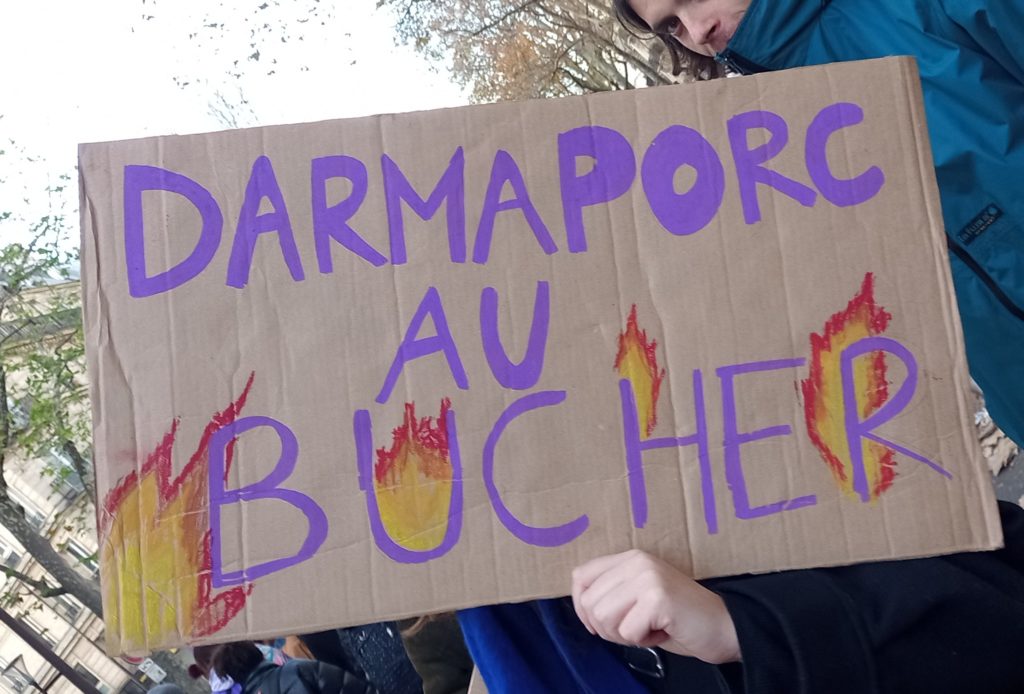 DARMAPORC
AU
BUCHER